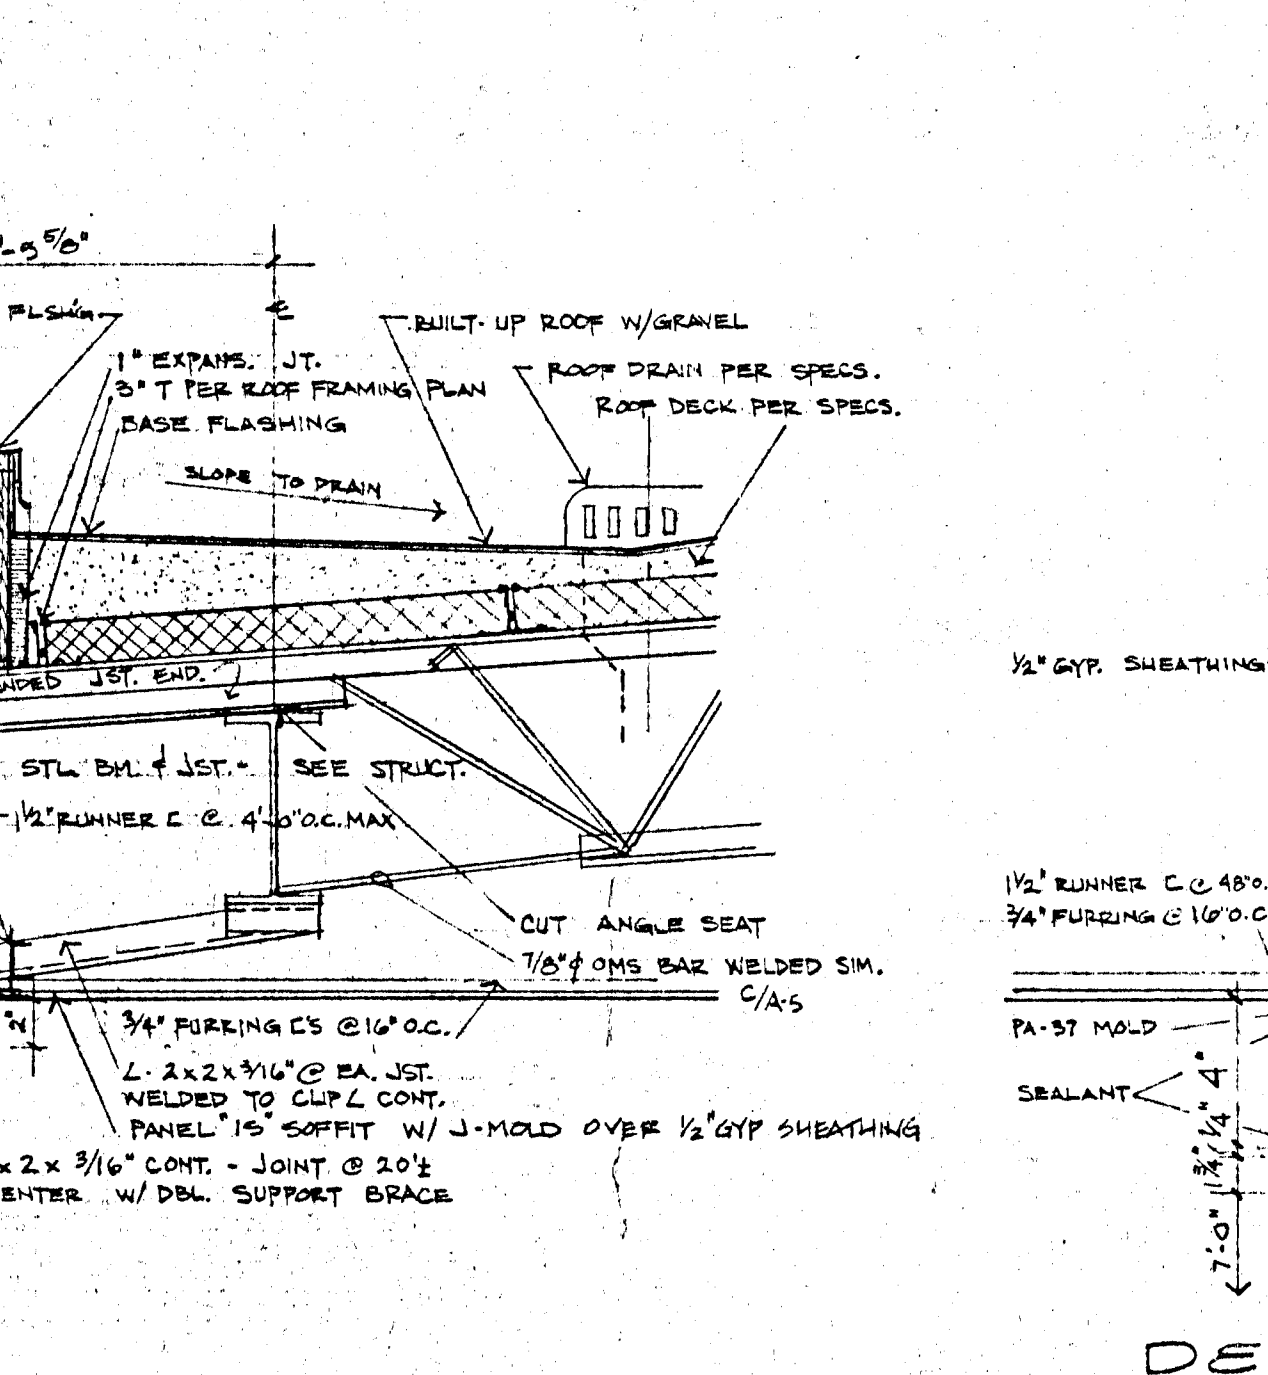 5/8"
FLSH'G
BUILT-UP ROOF W/GRAVEL
1" EXPANS. JT.
3" T PER ROOF FRAMING PLAN
BASE FLASHING
ROOF DRAIN PER SPECS.
ROOF DECK PER SPECS.
SLOPE TO DRAIN
NDED JST. END.
STL. BM. & JST. - SEE STRUCT.
1 1/2" RUNNER C @ 4'-0" O.C. MAX
CUT ANGLE SEAT
7/8" ¢ OMS BAR WELDED SIM.
C/A-5
3/4" FURRING C'S @ 16" O.C.
L- 2 x 2 x 3/16" @ EA. JST.
WELDED TO CLIP L CONT.
PANEL "15" SOFFIT W/ J-MOLD OVER 1/2" GYP SHEATHING
x 2 x 3/16" CONT. - JOINT @ 20'±
ENTER W/ DBL. SUPPORT BRACE
1/2" GYP. SHEATHING
1 1/2" RUNNER C @ 48" O.
3/4" FURRING @ 16" O.C
PA-37 MOLD
SEALANT
4"
1/4"
1 3/4"
7'-0"
DE